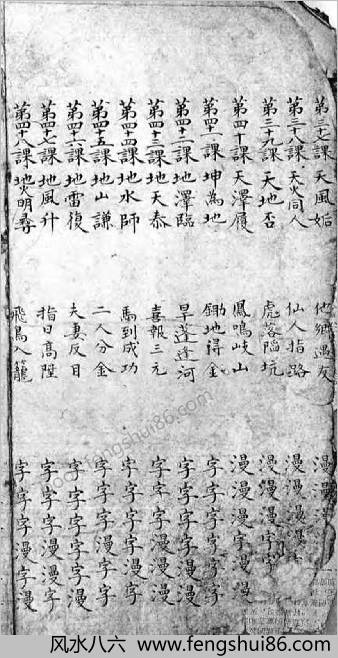 第三十七課 天風姤 他鄉遇友 漫漫漫
第三十八課 天火同人 仙人指路 漫漫漫漫
第三十九課 天地否 虎落陷坑 漫漫漫字字
第四十課 天澤履 鳳鳴岐山 漫漫漫字漫漫
第四十一課 坤為地 鋤地得金 字字字字字字
第四十二課 地澤臨 旱蓬逢河 字字字字漫漫
第四十三課 地天泰 喜報三元 字字字漫漫漫
第四十四課 地水師 馬到成功 字字字字漫字
第四十五課 地山謙 二人分金 字字字漫字字
第四十六課 地雷復 夫妻反目 字字字字字漫
第四十七課 地風升 指日高陞 字字字漫漫字
第四十八課 地火明尋 飛鳥入籠 字字字漫字漫
风水八六 www.fengshui86.com